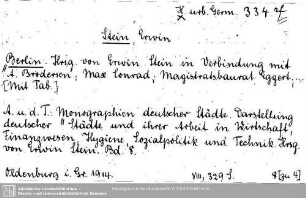 urb. Germ. 334
Stein, Erwin
Berlin. Hrsg. von Erwin Stein in Verbindung mit
A. Brodersen, Max Conrad, Magistratsbaurat Eggert, ..
[Mit Tab.]
A. u. d. T.: Monographien deutscher Städte. Darstellung
deutscher Städte und ihrer Arbeit in Wirtschaft,
Finanzwesen, Hygiene, Sozialpolitik und Technik. Hrsg.
von Erwin Stein. Bd. 8.
Oldenburg i. Gr. 1914. VIII, 329 S.